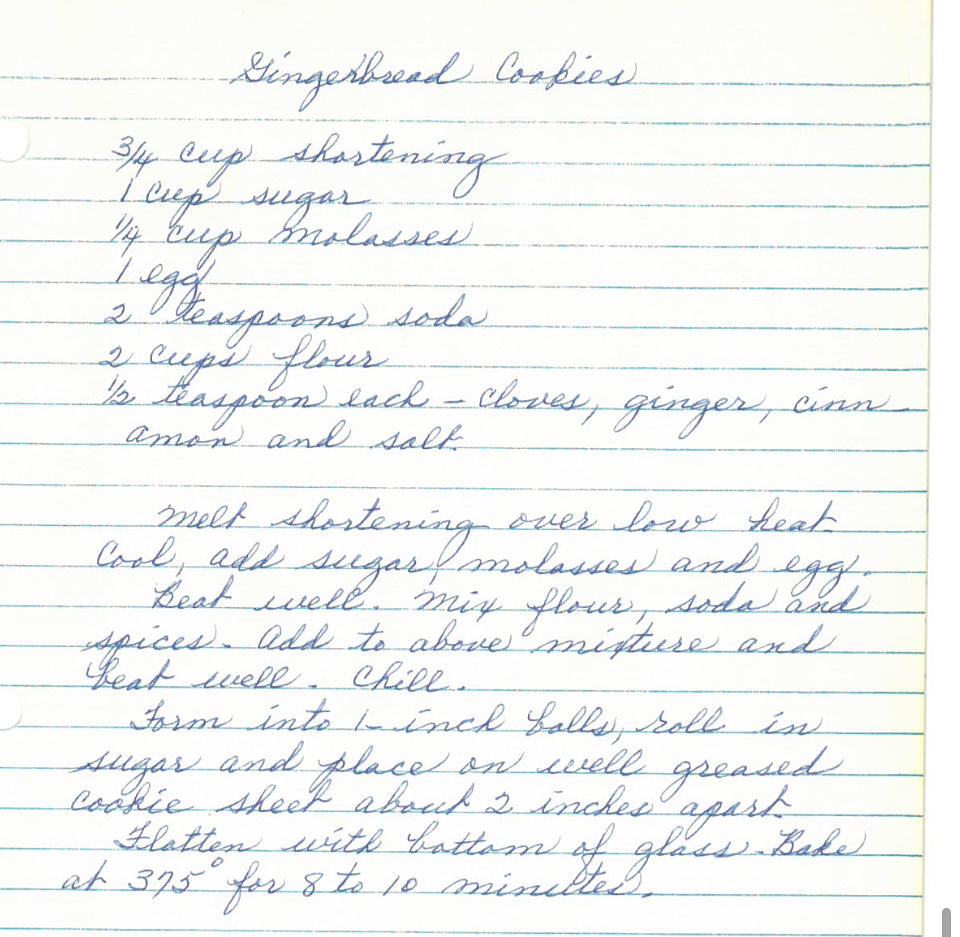 Gingerbread Cookies
3/4 cup shortening
1 cup sugar
1/4 cup molasses
1 egg
2 teaspoons soda
2 cups flour
1/2 teaspoon each - cloves, ginger, cinn-
amon and salt.
Melt shortening over low heat.
Cool, add sugar, molasses and egg.
Beat well. Mix flour, soda and
spices. Add to above mixture and
beat well. Chill.
Form into 1-inch balls, roll in
sugar and place on well greased
cookie sheet about 2 inches apart.
Flatten with bottom of glass. Bake
at 375° for 8 to 10 minutes.